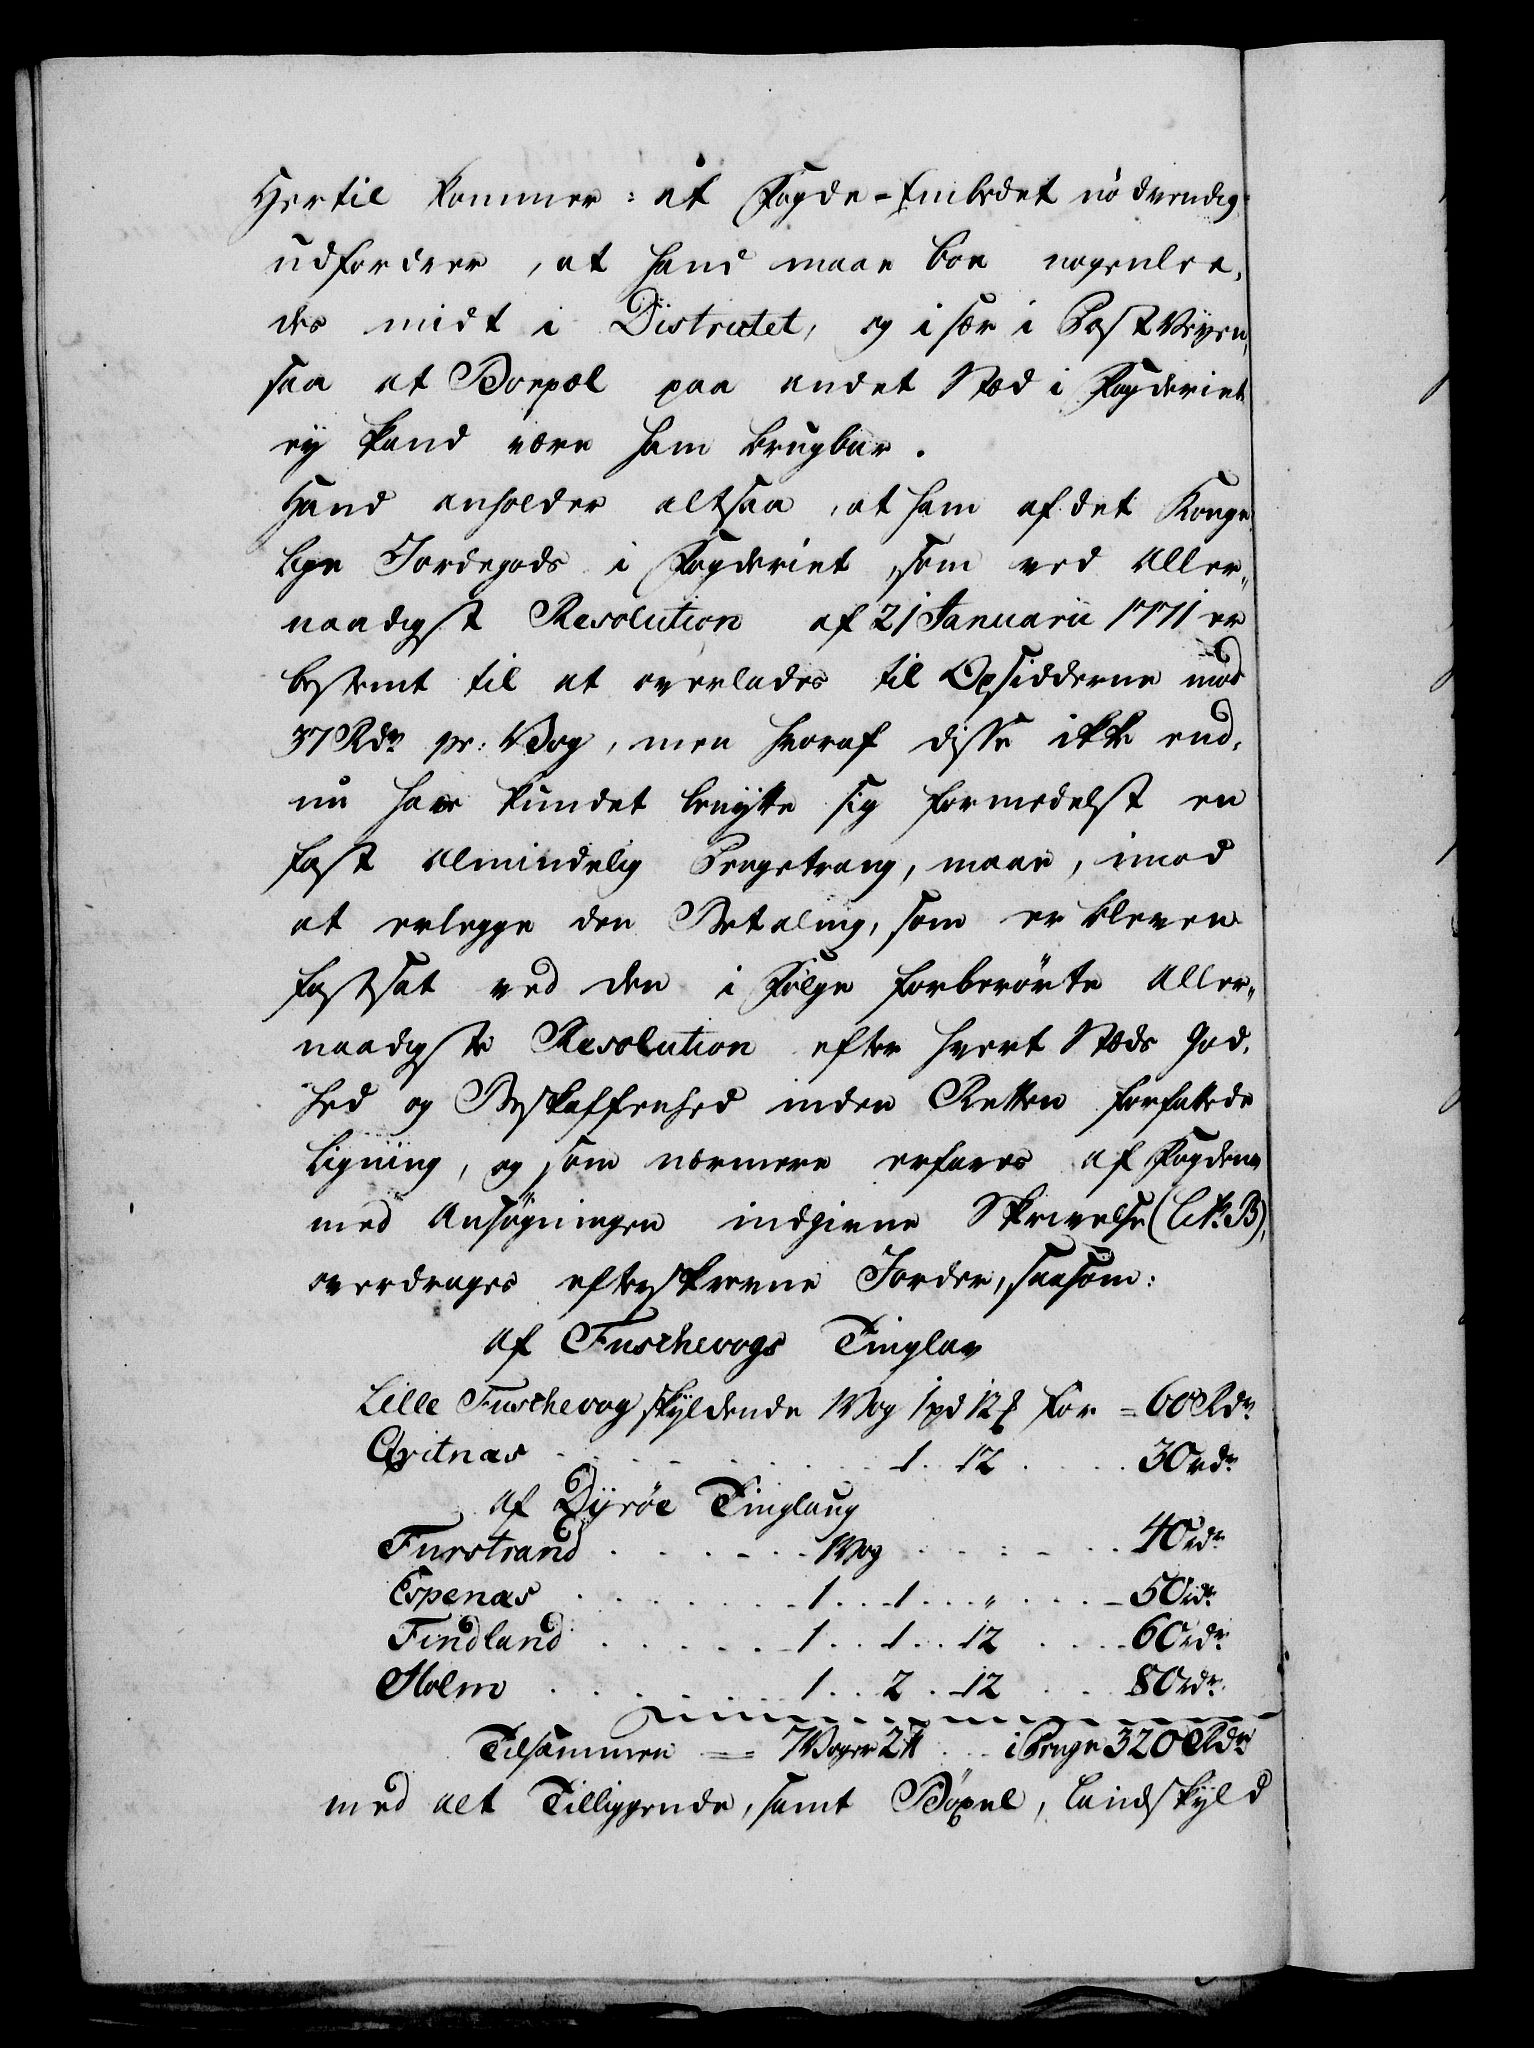 Hertil kommer: at Fogde-Embedet nödvendig
udfordrer, at hand maae boe nogenlee,
des midt i Districtet, og i sær i Post Veyen,
saa at Boepæl paa andet Stæd i Fogderiet
ey kand være ham brugbar.
Hand anholder altsaa, at ham af det Konge
lige Jordegods i Fogderiet, som ved Aller„
naadigst Resolution af 21 Januarii 1771 er
bestemt til at overlades til Opsidderne mod
37 Rdr pr: Vog, men hvoraf disse ikke end,
nu har kundet benytte sig formedelst en
fast almindelig Pengetrang, maae, imod
at erlegge den Betaling, som er bleven
fastsat ved den i Følge forberörte Aller„
naadigste Resolution efter hvert Stæds God,
hed og Beskaffenhed inden Retten forfattede
Ligning, og som nærmere erfares af Fogdens
med Ansøgningen indgivne Skrivelse (Litr. B),
overdrages efterskrevne Jorder, saasom:
af Fuschevogs Tinglav
Lille Fuschevog skyldende 1 Vog 1 pd 12 ℔ for = 60 Rdr
Qvitnæs . . . 1 . . 12 . . . 30 rdr
af Dyröe Tinglaug
Furstrand . . . 1 Vog . . . 40 rdr
Espenæs . . . 1 . . 1 . . „ . . . 50 rdr
Findland . . . 1 . . 1 . . 12 . . . 60 rdr
Holm . . . 1 . . 2 . . 12 . . . 80 rdr
Tilsammen = 7 Voger 2 ℔ . . . i Penge 320 Rdr
med alt Tilliggende, samt Böxel, Landskyld